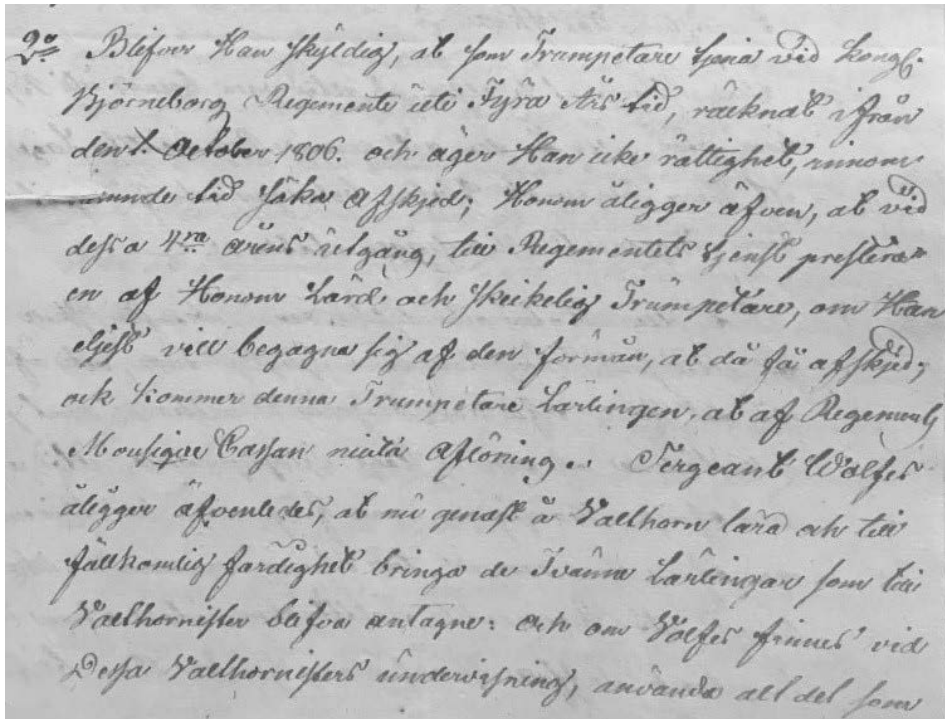 2o Blifver Han skyldig, at som Trumpetare tjena vid Kongl.
Björneborg Regemente uti Fyra Års tid, räcknat ifrån
den 1. October 1806. och äger Han icke rättighet, innom
tid söka Afskjed; Honom åligger äfven, at vid
dessa 4ra årens utgång, till Regementets tjenst prestera
en af Honom Lärd och skickelig Trumpetare, om Han
eljest vill begagna sig af den förmån, at då få afskjed;
och kommer denna Trumpetare Lärlingen, at af Regements
Mousique Cassan niuta Aflöning. Sergeant Wolfes
åligger äfvenledes, at nu genast å Valthorn lära och till
fullkomlig färdighet bringa de Tvänne Lärlingar som till
Valthornister blifva antagne: och om Volfes finnes vid
Dessa Valthornisters undervisning, använda all del som